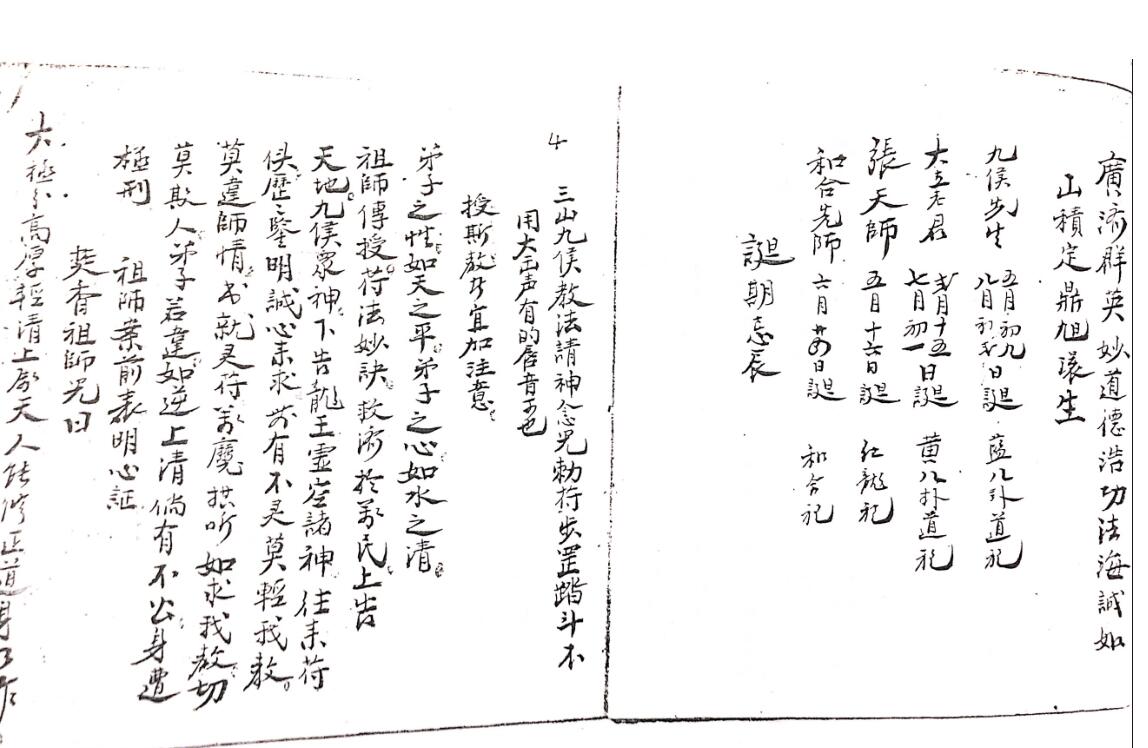 廣济群英妙道德浩功法海誠如
山積定鼎旭環生
九侯先生 五月初九 八月初弍日誕 藍八卦道袍
大立老君 弍月十五 七月初一日誕 黄八卦道袍
張天師 五月十六日誕 红龍袍
和合先師 六月廿四日誕 和合袍
誕期忌辰
4 三山九侯教法請神念咒勅符步罡踏斗不
用大声有的唇音可也
授斯教乃宜加注意
弟子之性如天之平弟子之心如水之清
祖師傳授符法妙訣救济於万民上告
天地九侯眾神下告龍王虚空諸神往来符
侯歷歷鑒明誠心来求若有不灵莫輕我教
莫違師情书就灵符万魔拱听如求我教切
莫欺人弟子若違如逆上清倘有不公身遭
極刑 祖師案前表明心証
焚香祖師咒曰
太極分高厚輕清上属天人能修正道身